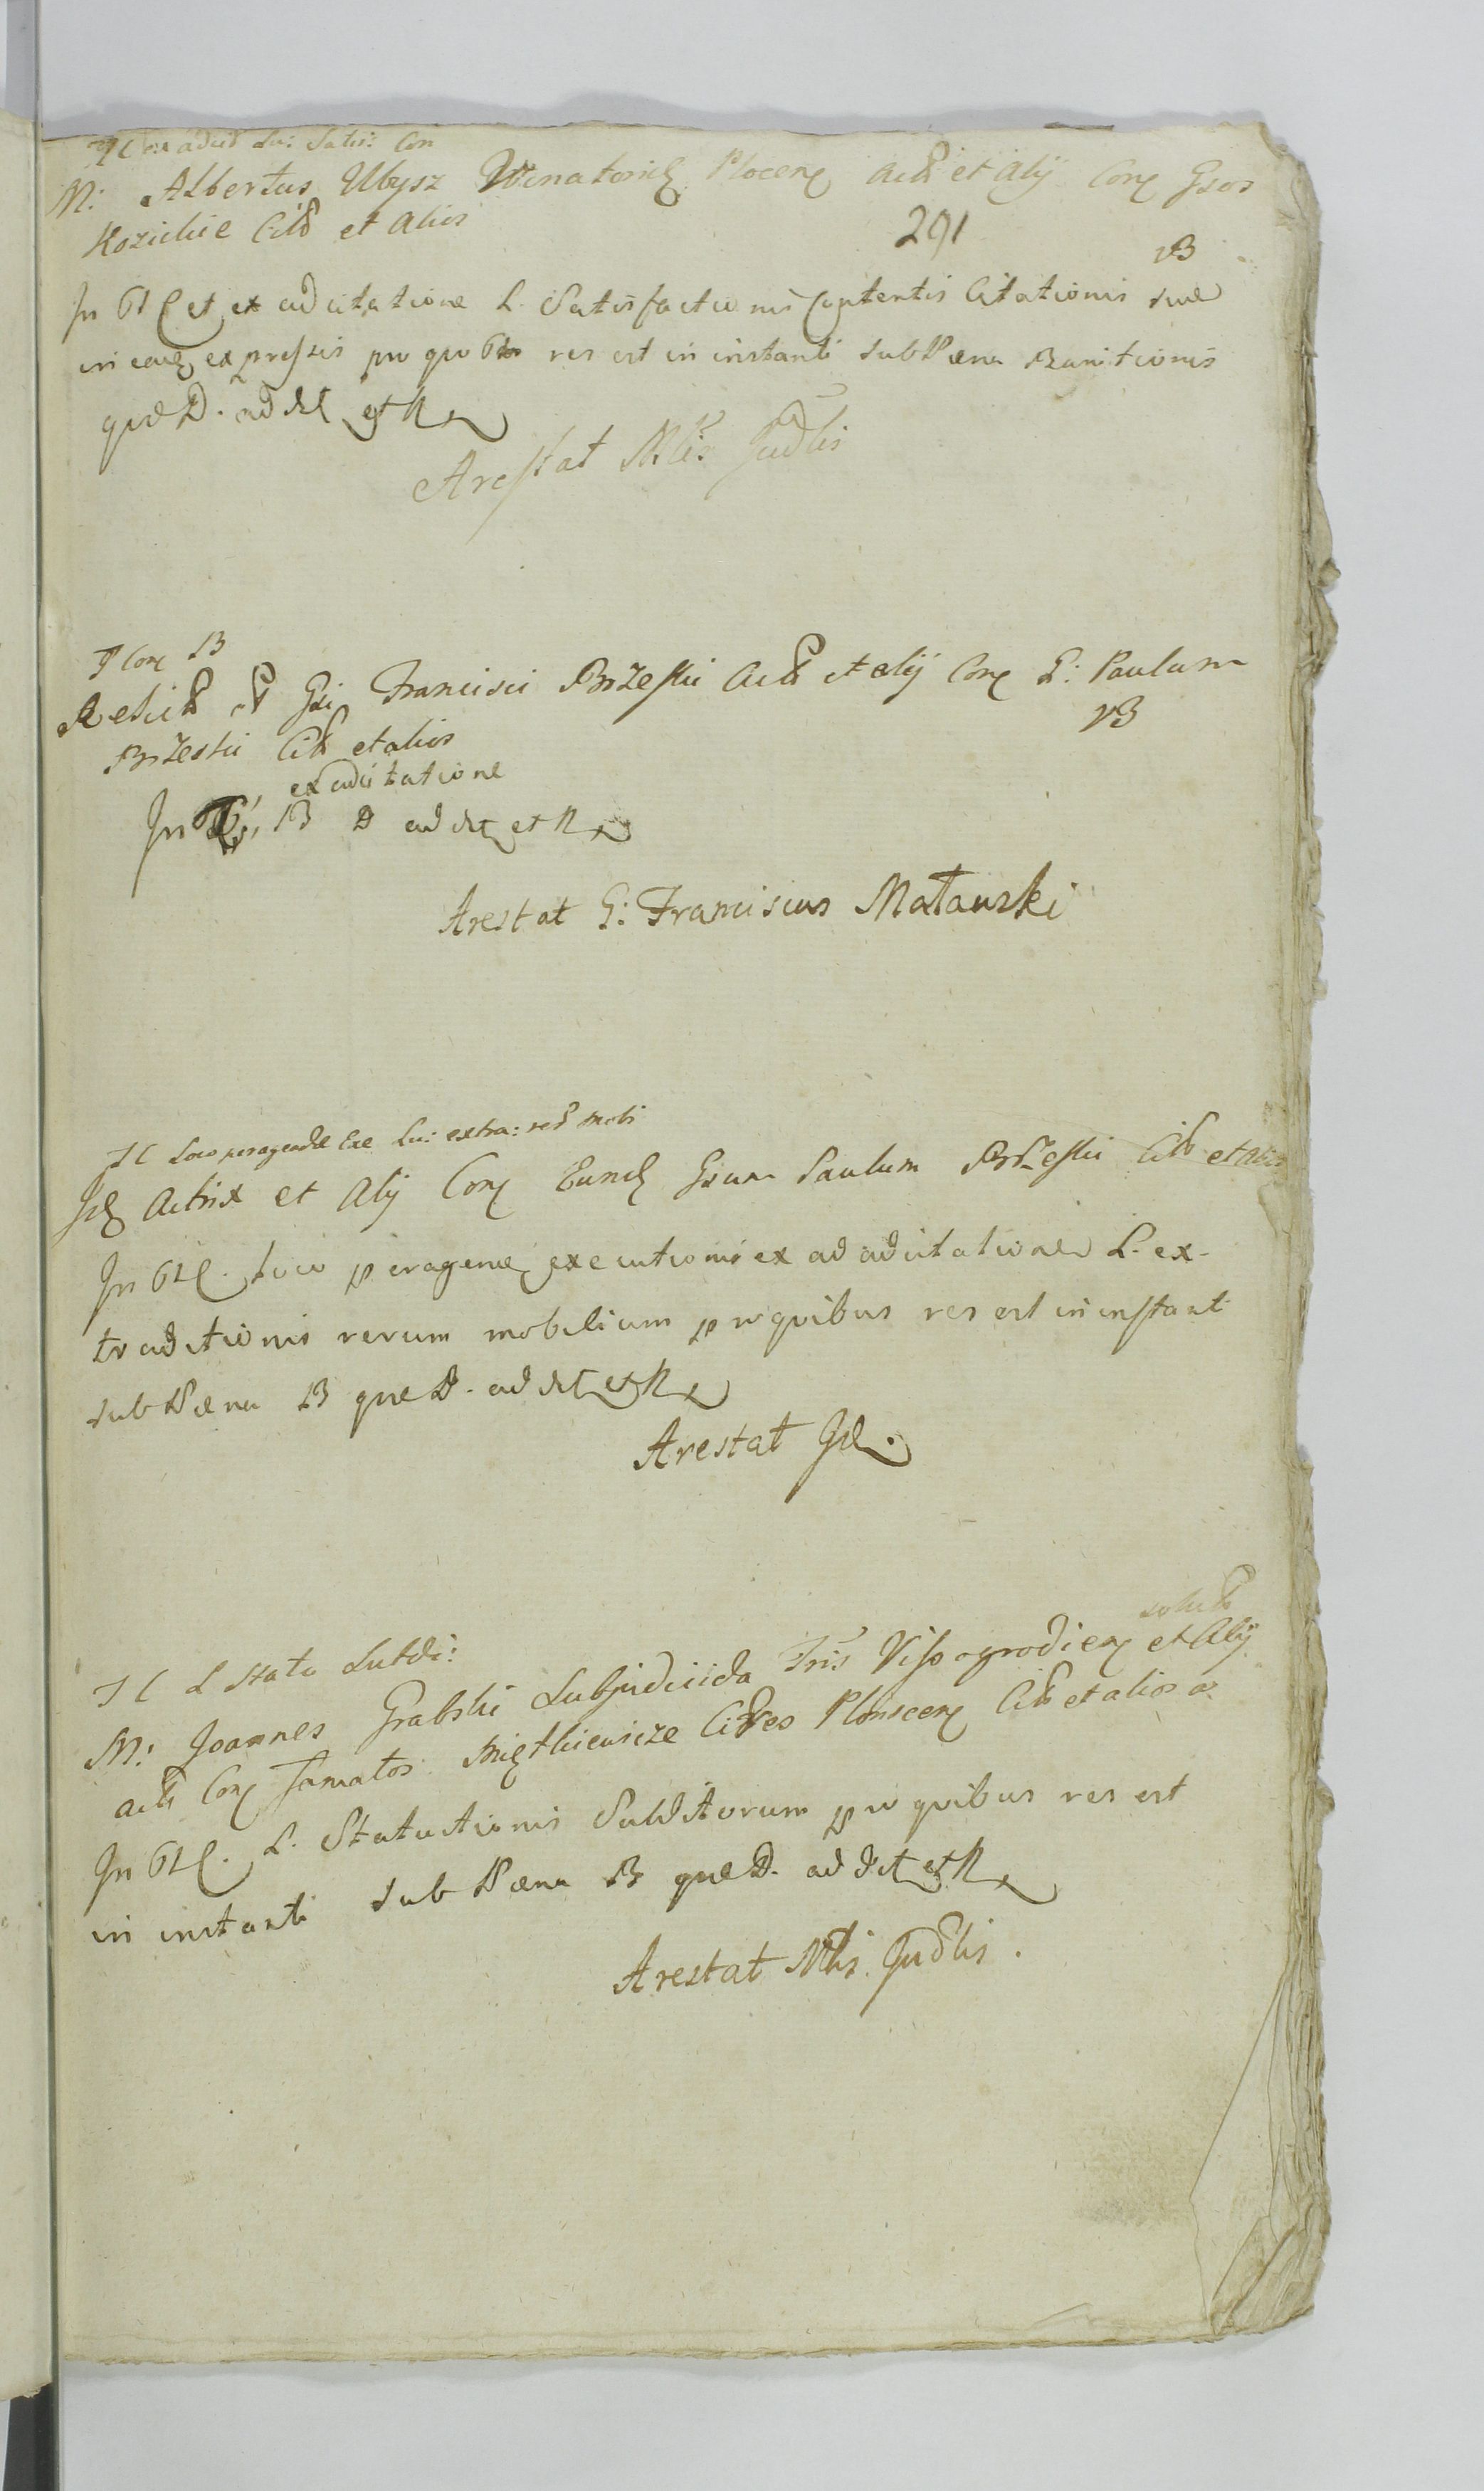 T C ex adcit Lu: Satis: Con
M: Albertus Ubysz Wenatorid Plocen Actt et Alij Con Gsos
Kozickie Citt et Alios
291
vB
In Ttt C et ex adcitatione L. Satisfactionis Contentis Citationis suae
in eaq expressis pro quo Ttto res est in instanti sub Paena Banitionis
quae D. ad dct et R
Arestat Nblis Judlis
T Con B
Relictt et Gsi Francisci Brzeski Actt et alij Con G: Paulum
vB
Brzeski Citt et alios
ex adcitatione
In B D ad dct et R
Arestat G: Franciscus Matauski
T C Loco peragendae Exe Lu: extra: red mobi
Id Actrix et Alij Con Eund Gsum Paulum Brzeski Citt et Alios
In Ttt C. loco peragen executionis ex ad adcitatione L. ex-
traditionis rerum mobilium pro quibus res est in instant
sub Paena B quae D. ad dct et R
Arestat Id.
T C L Statu Subdi:
solutt
M: Joannes Grabski Subjudicida Tris Vissogrodien et Alij
Actt Con Famatos Miętkiewicze Cives Plonscen Citt et alios
In Ttt C. L. Statuitionis Subditorum pro quibus res est
in instanti sub Paena B quae D. ad dct et R
Arestat Nblis Judlis.